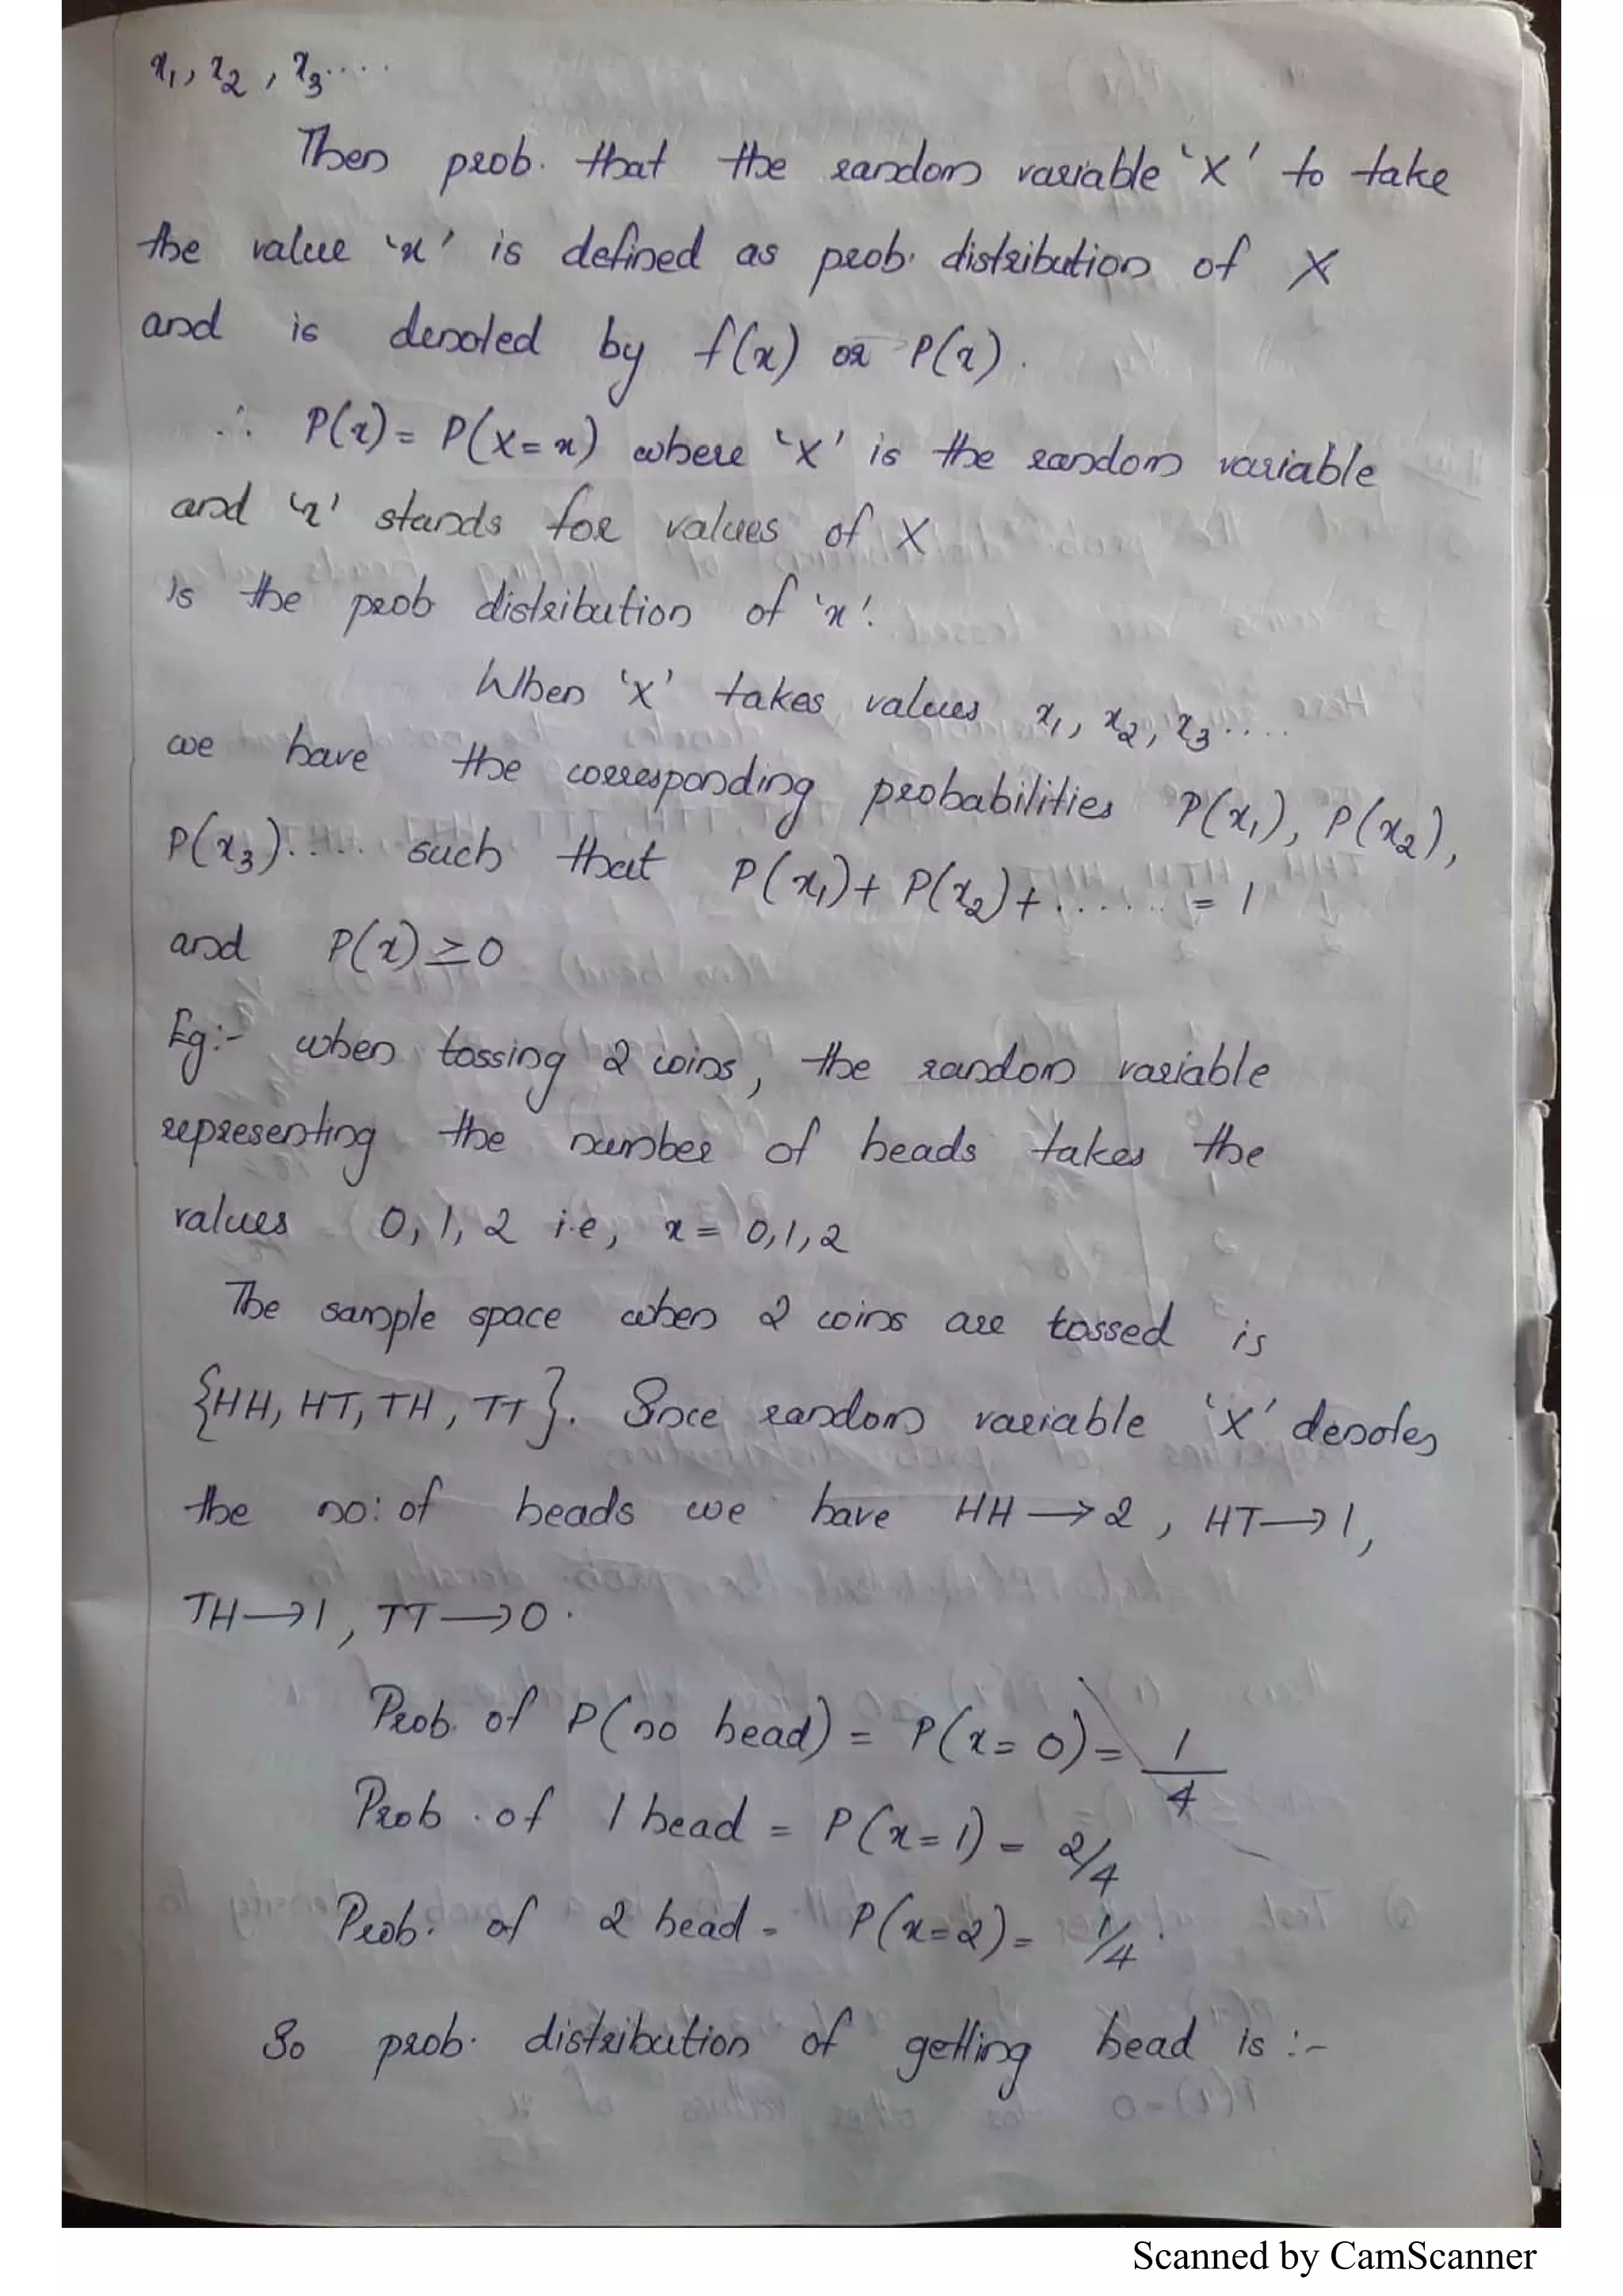 x₁, x₂, x₃....
Then prob. that the random variable 'X' to take
the value 'x' is defined as prob. distribution of X
and is denoted by f(x) or P(x).
∴ P(x) = P(X = x) where 'X' is the random variable
and 'x' stands for values of X
is the prob distribution of 'x'.
When 'X' takes values x₁, x₂, x₃....
we have the corresponding probabilities P(x₁), P(x₂),
P(x₃)..... such that P(x₁) + P(x₂) + ...... = 1
and P(x) ≥ 0
Eg:- when tossing 2 coins, the random variable
representing the number of heads takes the
values 0, 1, 2 i.e, x = 0, 1, 2
The sample space when 2 coins are tossed is
{HH, HT, TH, TT}. Since random variable 'X' denotes
the no: of heads we have HH → 2, HT → 1,
TH → 1, TT → 0.
Prob. of P(no head) = P(x = 0) = 1/4
Prob. of 1 head = P(x = 1) = 2/4
Prob. of 2 head = P(x = 2) = 1/4.
So prob. distribution of getting head is :-
Scanned by CamScanner